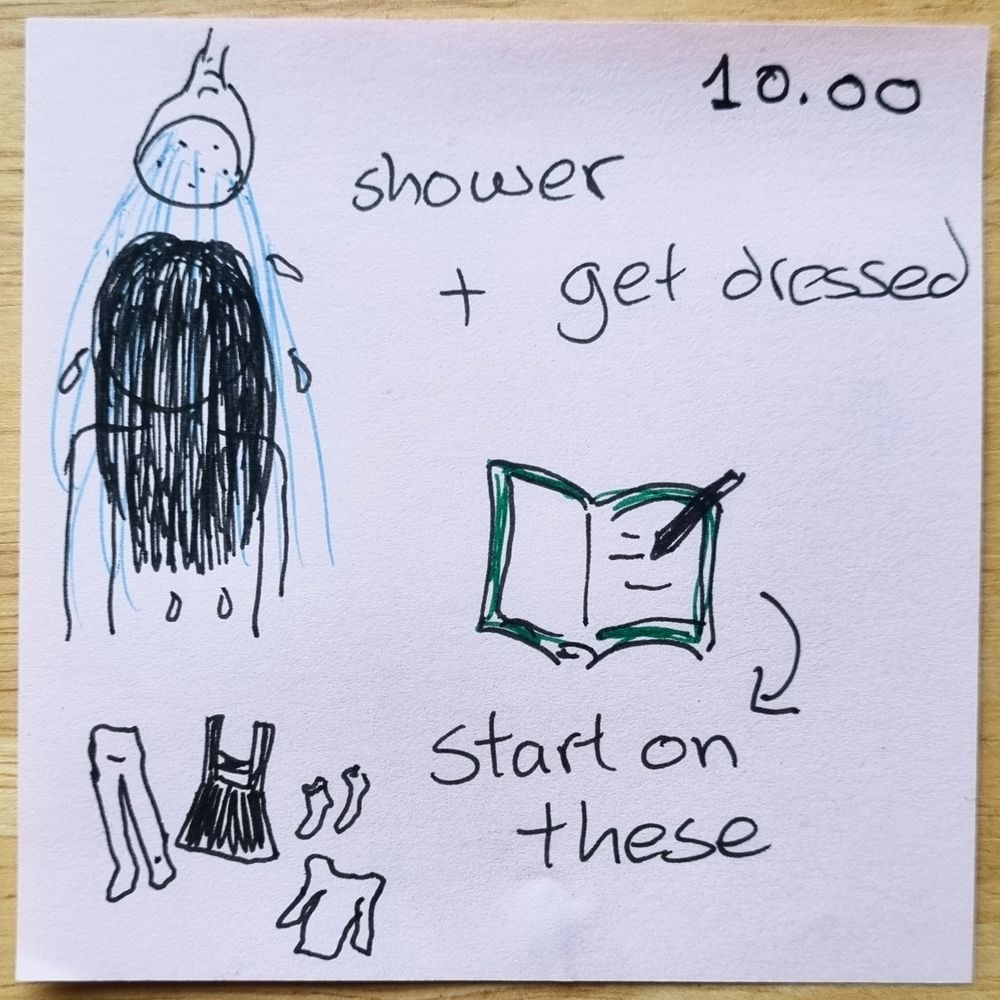 10.00
shower
+ get dressed
start on
these